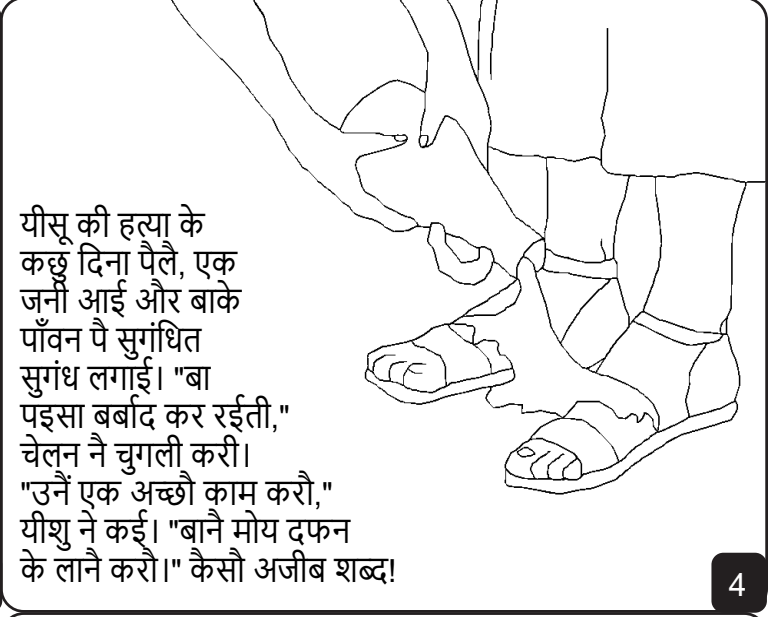 यीसू की हत्या के
कछु दिना पैलै, एक
जनी आई और बाके
पाँवन पै सुगंधित
सुगंध लगाई। "बा
पइसा बर्बाद कर रईती,"
चेलन नै चुगली करी।
"उनैं एक अच्छौ काम करौ,"
यीशु ने कई। "बानै मोय दफन
के लानै करौ।" कैसौ अजीब शब्द!
4